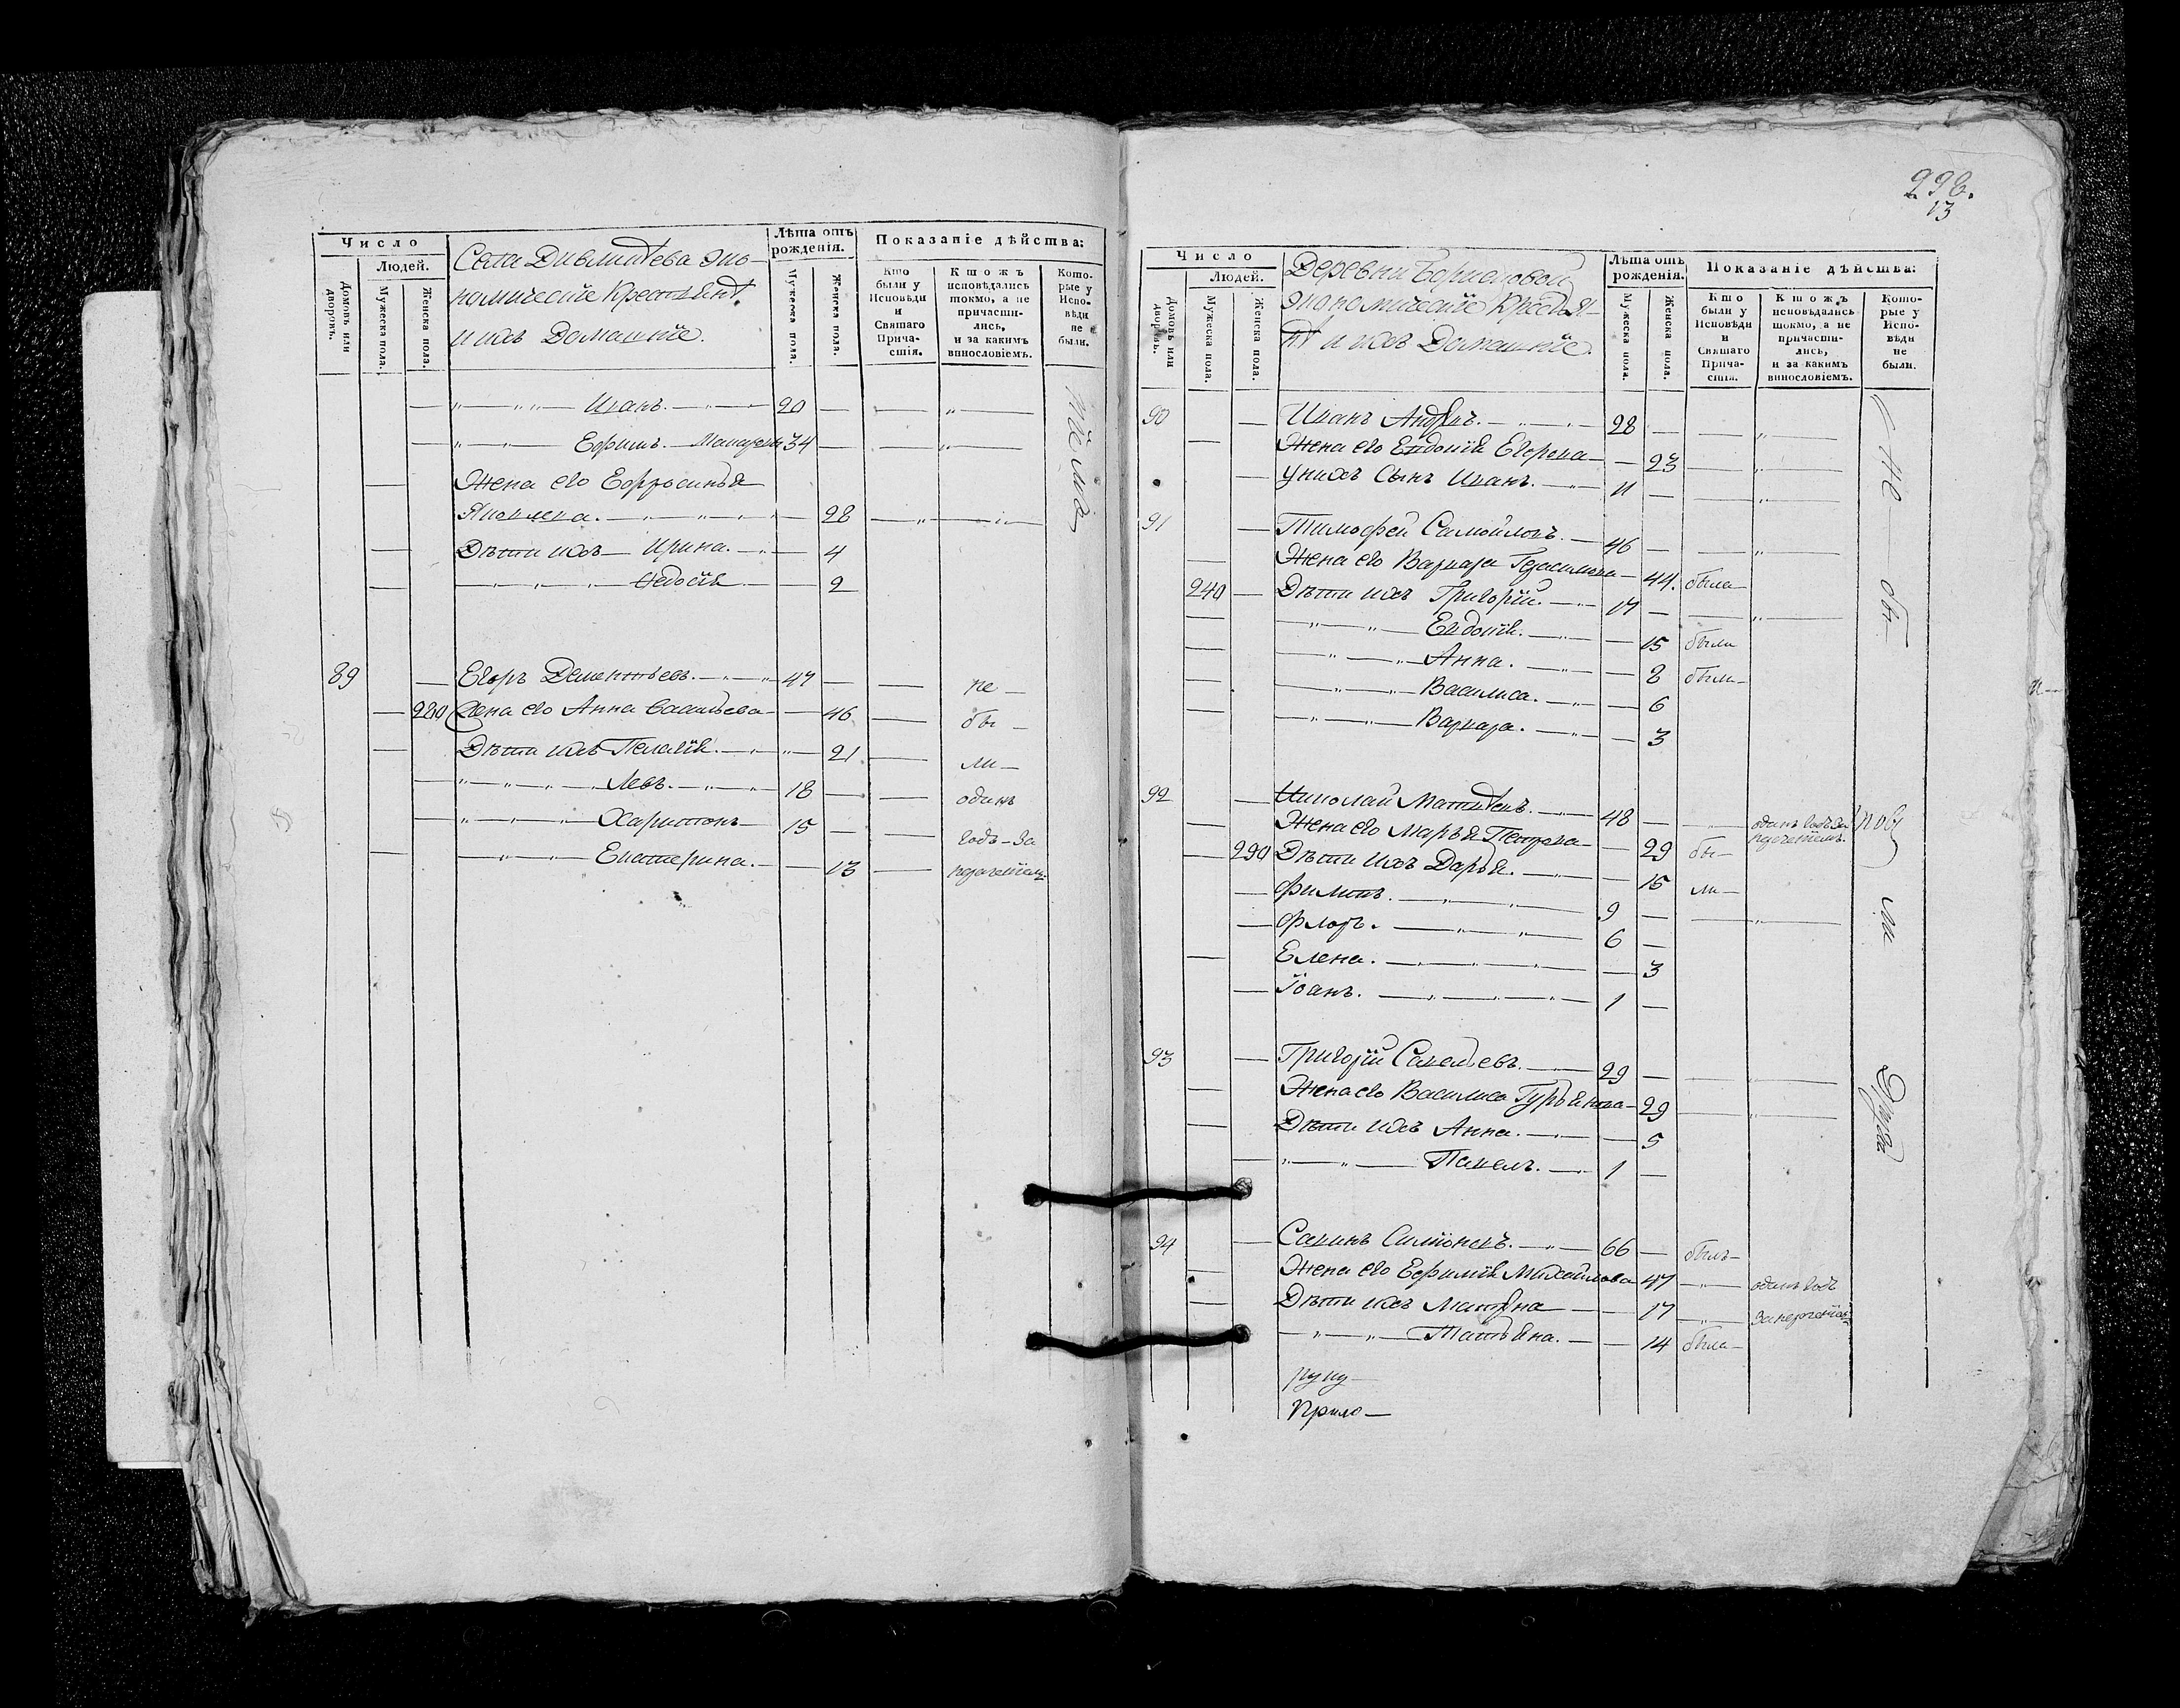 Число
Людей.
Домовъ или дворовъ.
Мужеска пола.
Женска пола.
Села Дивлитева эко-
номическіе крестьянѣ
и ихъ домашніе.
Лѣта отъ рожденія.
Мужеска пола.
Женска пола.
Показаніе дѣйства:
Кто были у Исповѣди и Святаго Прича-стія.
Ктожъ исповѣдались токмо, а не причасти-лись, и за какимъ винословіемъ.
Кото-рые у Испо-вѣди не были.
— „ — „ „ — Иванъ. — „ — 20 — — „ —
— „ — „ — Ефимъ. — 34 — — „ —
— Жена его Ефросинья
Яковлева. — „ — „ — 28 — „ —
— Дѣти ихъ — Ирина. — „ — 4
— „ — „ — Ѳедосія — 2
89 — Егоръ Дементьевъ. — „ — „ 47 — — не —
— 280 Жена его Анна Васильева — 46 — бы —
— Дѣти ихъ Пелагія. — „ — 21 — ли —
— „ — „ — „ Левъ. — „ — 18 — — одинъ
— „ — „ — „ — Харитонъ — 15 — — годъ — за
— „ — „ — Екатерина. — 13 — нерачетіемъ
298.
13
Число
Людей.
Домовъ или дворовъ.
Мужеска пола.
Женска пола.
Деревни Борисловой
экономическіе крестья-
нѣ и ихъ домашніе.
Лѣта отъ рожденія.
Мужеска пола.
Женска пола.
Показаніе дѣйства:
Кто были у Исповѣди и Святаго Прича-стія.
Ктожъ исповѣдались токмо, а не причасти-лись, и за какимъ винословіемъ.
Кото-рые у Испо-вѣди не были.
90 — Иванъ Андреевъ. — „ — 28 — — „ — не
— Жена его Евдокія Егорова — 23 — „ —
— У нихъ сынъ Иванъ. — „ — 11 — — „ —
91 — Тимофей Самойловъ. — 46 — — „ —
— Жена его Варвара Герасимова — 44. была —
240 — Дѣти ихъ Григорій. — „ — 17 — — „ — бы
— „ — „ — Евдокія. — „ — 15 были
— „ — „ — Анна. — „ — 8 были —
— „ — „ — Василиса. — „ — 6
— „ — „ — Варвара. — „ — 3
92 — Николай Матвѣевъ. — „ — 48 — „ одинъ годъ за
— Жена его Марья Петрова — 29 бы — нерачетіемъ.
— 290 Дѣти ихъ Дарья. — „ — 15 ли —
— Филипъ. — „ — „ — 9 — — „ — ли
— Флоръ. — „ — „ — 6 —
— Елена. — „ — „ — 3
— Іоанъ. — „ — „ — „ — 1 —
93 — Григорій Савельевъ. — „ — 29 — — „ —
— Жена его Василиса Гурьянова — 29 — „ —
— Дѣти ихъ Анна. — „ — 5
— „ — „ — Павелъ. — „ — 1 —
94 — Савинъ Симіоновъ. — „ — 66 — былъ —
— Жена его Ефимія Михайлова — 47 — „ — одинъ годъ
— Дѣти ихъ Матрена — 17 — „ — за нерачетіемъ
— „ — „ — Татьяна. — 14 была —
руку —
Прило —